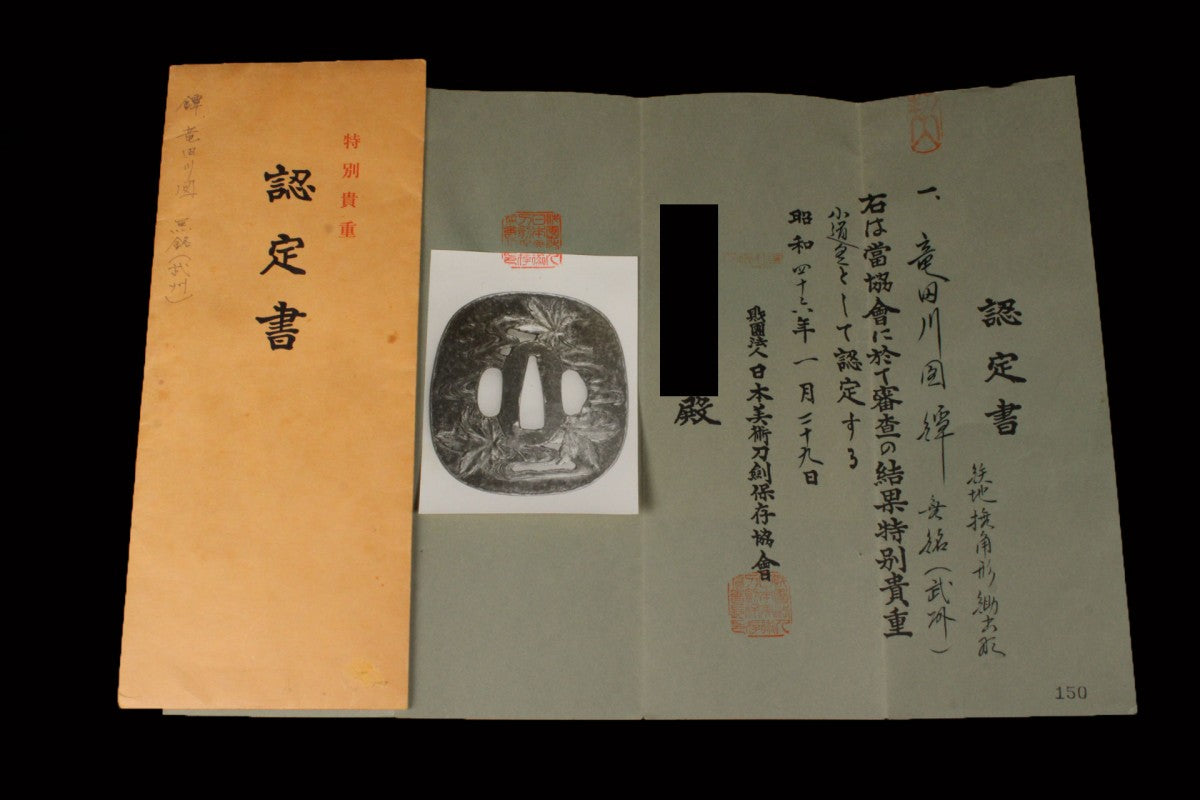 認定書
鉄地撫角形鋤出彫
一、竜田川図鐔 無銘(武州)
右は當協會に於て審査の結果特別貴重
小道具として認定する
昭和四十六年一月二十九日
財團法人日本美術刀劍保存協會
殿
150
特別貴重
認定書
鐔 竜田川図 無銘(武州)